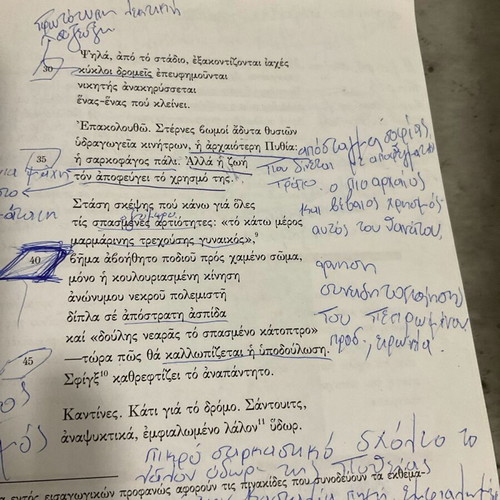 30
Ψηλά, ἀπό τό στάδιο, ἐξακοντίζονται ἰαχές
κύκλοι δρομεῖς ἐπευφημοῦνται
νικητής ἀνακηρύσσεται
ἕνας-ἕνας πού κλείνει.
Ἐπακολουθῶ. Στέρνες βωμοί ἄδυτα θυσιῶν
ὑδραγωγεῖα κινήτρων, ἡ ἀρχαιότερη Πυθία:
35
ἡ σαρκοφάγος πάλι. Ἀλλά ἡ ζωή
τόν ἀποφεύγει τό χρησμό της.
ὁ πιο αρχαίος
και βέβαιος χρησμός
αυτός του θανάτου,
Στάση σκέψης πού κάνω γιά ὅλες
τίς σπασμένες ἀρτιότητες: «τό κάτω μέρος
μαρμάρινης τρεχούσης γυναικός»,⁹
40
βῆμα ἀβοήθητο ποδιοῦ πρός χαμένο σῶμα,
μόνο ἡ κουλουριασμένη κίνηση
ἀνώνυμου νεκροῦ πολεμιστῆ
δίπλα σέ ἀπόστρατη ἀσπίδα
καί «δούλης νεαρᾶς τό σπασμένο κάτοπτρο»
45
—τώρα πῶς θά καλλωπίζεται ἡ ὑποδούλωση.
Σφίγξ¹⁰ καθρεφτίζει τό ἀναπάντητο.
του πεπρωμένου
ειρωνία.
Καντίνες. Κάτι γιά τό δρόμο. Σάντουιτς,
ἀναψυκτικά, ἐμφιαλωμένο λάλον¹¹ ὕδωρ.
Πικρό σαρκαστικό σχόλιο το
λάλον ύδωρ της Πυθίας
εντός εἰσαγωγικῶν προφανῶς ἀφοροῦν τίς πινακίδες πού συνοδεύουν τά ἐκθέμα-